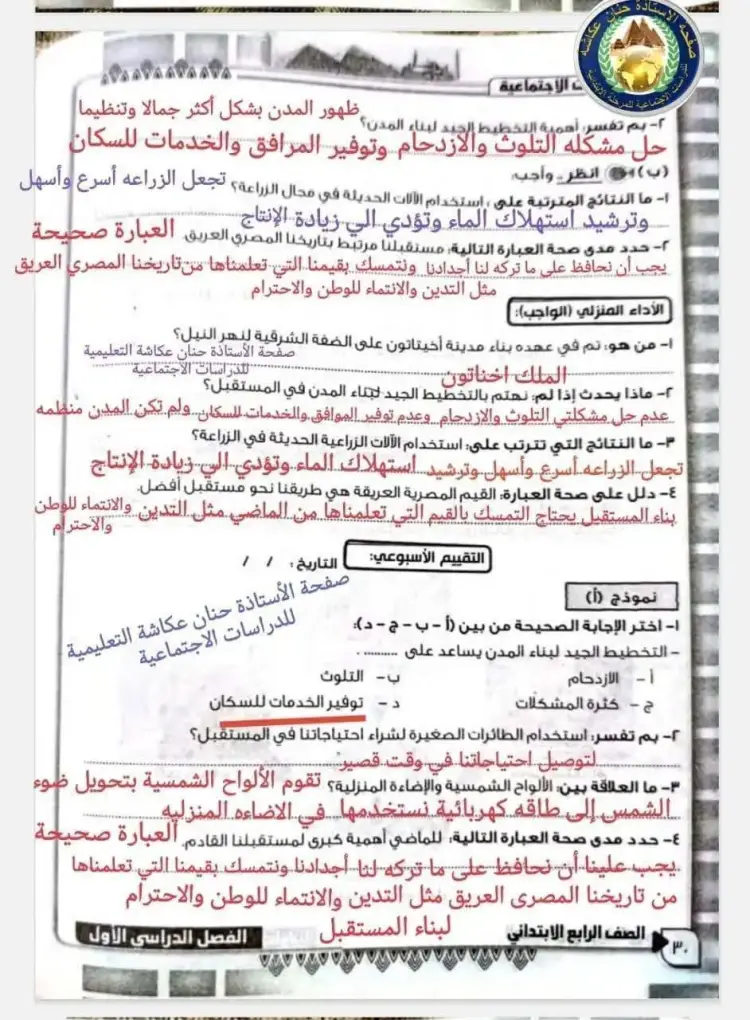 صفحة الأستاذة حنان عكاشة
للدراسات الاجتماعية للمرحلة الابتدائية
ت الاجتماعية
ظهور المدن بشكل أكثر جمالا وتنظيما
٢- بم تفسر: أهمية التخطيط الجيد لبناء المدن؟
حل مشكله التلوث والازدحام وتوفير المرافق والخدمات للسكان
(ب) انظر.. وأجب:
تجعل الزراعه أسرع وأسهل
١- ما النتائج المترتبة على: استخدام الآلات الحديثة في مجال الزراعة؟
وترشيد استهلاك الماء وتؤدي الي زيادة الإنتاج
٢- حدد مدى صحة العبارة التالية: مستقبلنا مرتبط بتاريخنا المصري العريق. العبارة صحيحة
يجب أن نحافظ على ما تركه لنا أجدادنا ونتمسك بقيمنا التي تعلمناها من تاريخنا المصري العريق
مثل التدين والانتماء للوطن والاحترام
الأداء المنزلي (الواجب):
١- من هو: تم في عهده بناء مدينة أخيتاتون على الضفة الشرقية لنهر النيل؟
صفحة الأستاذة حنان عكاشة التعليمية
للدراسات الاجتماعية
الملك اخناتون
٢- ماذا يحدث إذا لم: نهتم بالتخطيط الجيد لبناء المدن في المستقبل؟
عدم حل مشكلتي التلوث والازدحام وعدم توفير الموافق والخدمات للسكان ولم تكن المدن منظمه
٣- ما النتائج التي تترتب على: استخدام الآلات الزراعية الحديثة في الزراعة؟
تجعل الزراعه أسرع وأسهل وترشيد استهلاك الماء وتؤدي الي زيادة الإنتاج
٤- دلل على صحة العبارة: القيم المصرية العريقة هي طريقنا نحو مستقبل أفضل.
بناء المستقبل يحتاج التمسك بالقيم التي تعلمناها من الماضي مثل التدين والانتماء للوطن
والاحترام
التقييم الأسبوعي:
التاريخ: / /
صفحة الأستاذة حنان عكاشة التعليمية
للدراسات الاجتماعية
نموذج (أ)
١- اختر الإجابة الصحيحة من بين (أ - ب - ج - د):
- التخطيط الجيد لبناء المدن يساعد على ...........
أ - الازدحام ب - التلوث
ج - كثرة المشكلات د - توفير الخدمات للسكان
٢- بم تفسر: استخدام الطائرات الصغيرة لشراء احتياجاتنا في المستقبل؟
لتوصيل احتياجاتنا في وقت قصير
٣- ما العلاقة بين: الألواح الشمسية والإضاءة المنزلية؟ تقوم الألواح الشمسية بتحويل ضوء
الشمس إلى طاقه كهربائية نستخدمها في الاضاءه المنزليه
٤- حدد مدى صحة العبارة التالية: للماضي أهمية كبرى لمستقبلنا القادم. العبارة صحيحة
يجب علينا أن نحافظ على ما تركه لنا أجدادنا ونتمسك بقيمنا التي تعلمناها
من تاريخنا المصرى العريق مثل التدين والانتماء للوطن والاحترام
لبناء المستقبل
٣٠ الصف الرابع الابتدائي
الفصل الدراسي الأول